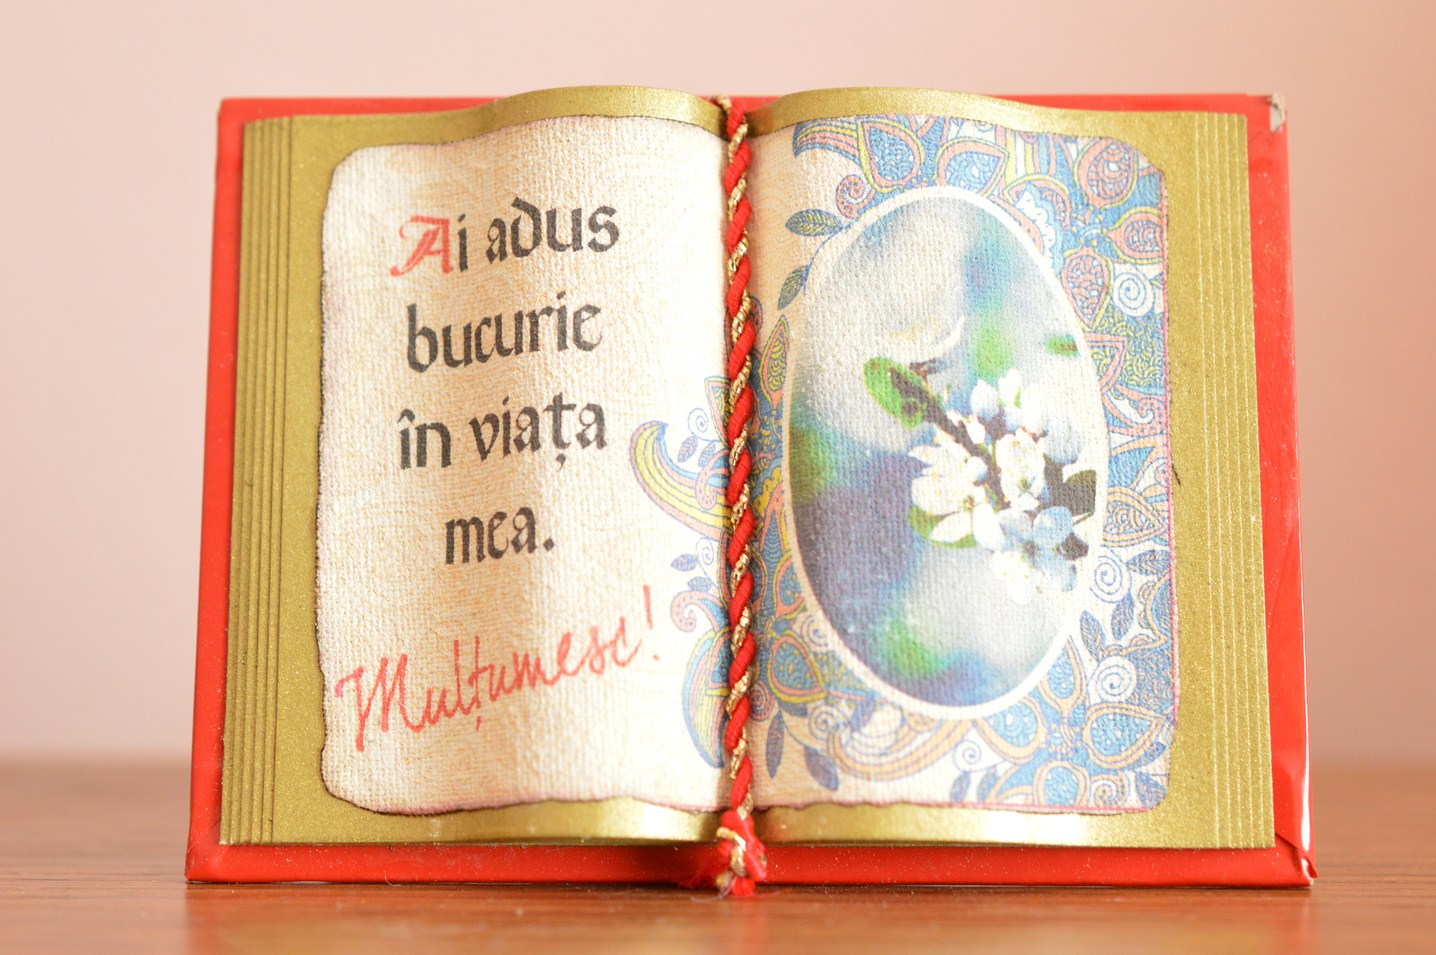 Ai adus
bucurie
în viața
mea.
Mulțumesc!